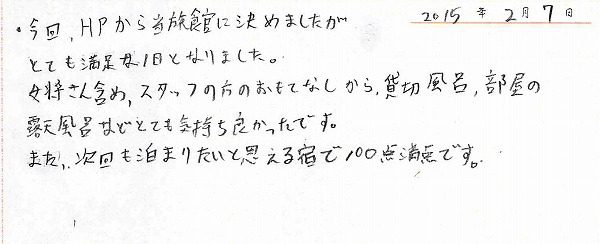 2015年2月7日
・今回、HPから当旅館に決めましたが
とても満足な1日となりました。
女将さん含め、スタッフの方のおもてなしから、貸切風呂、部屋の
露天風呂などとても気持ち良かったです。
また、次回も泊まりたいと思える宿で100点満点です。